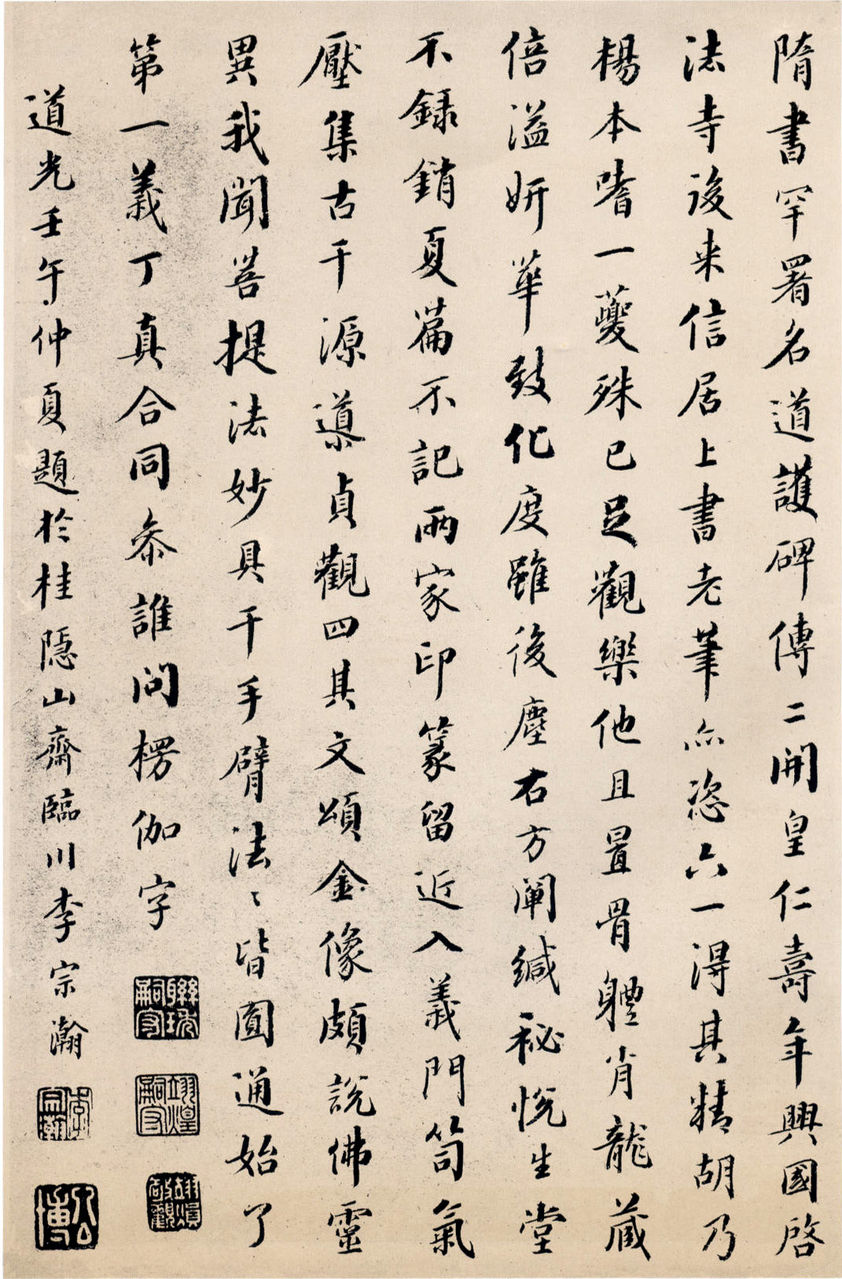 隋書罕署名道護碑傳二開皇仁壽年興國啓
法寺後来信居上書老筆亦恣六一得其精胡乃
楊本嗜一夔殊已足觀樂他且置骨體肖龍藏
倍溢妍華致化度雖後塵右方闡緘秘悅生堂
不録銷夏篇不記兩家印篆留近入義門笥氣
壓集古千源導貞觀四其文頌金像頗說佛靈
異我聞菩提法妙具千手臂法〻皆圓通始了
第一義丁真合同叅誰問楞伽字
道光壬午仲夏題於桂隱山齋臨川李宗瀚
李宗瀚
公博